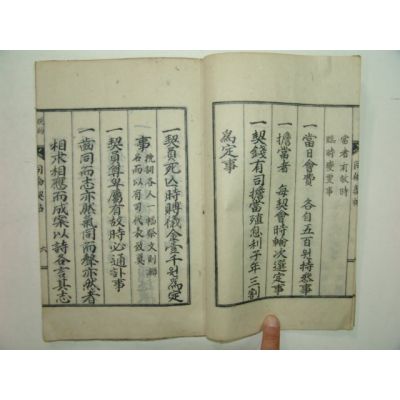 當者有故時
臨時變更事
一當日會費 各自五百원持參事
一擔當者 每契會時輪次選定事
一契錢有司擔當殖息利子年三割
爲定事
一契員死亡時賻儀金壹千원爲定
事 挽詞各人一幅祭文則聯
名而以有司代表致奠
一契員尊卑屬有故時必通訃事
一齒同而志亦然氣同而聲亦然者
相求相應而成案以詩各言其志
六